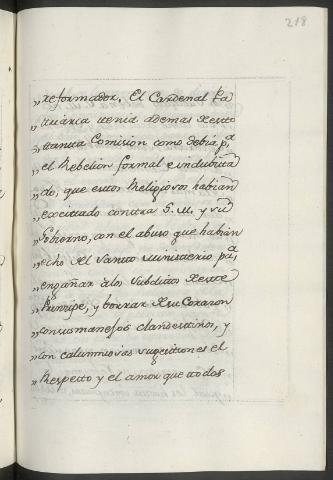 218
„reformador. El Cardenal Pa
„triarca tenia ademas de esto
„tanta Comision como debia p.ª
„el Rebelion formal e indubita
„do, que estos Religiosos habian
„excitado contra S. M. y su
„Gobierno, con el abuso que habian
„echo del Santo ministerio p.ª
„engañar à los Subditos de este
„Principe, y borrar de su Corazon
„con sus manejos clandestinos, y
„con calumniosas sugestiones el
„Respecto y el amor que todos